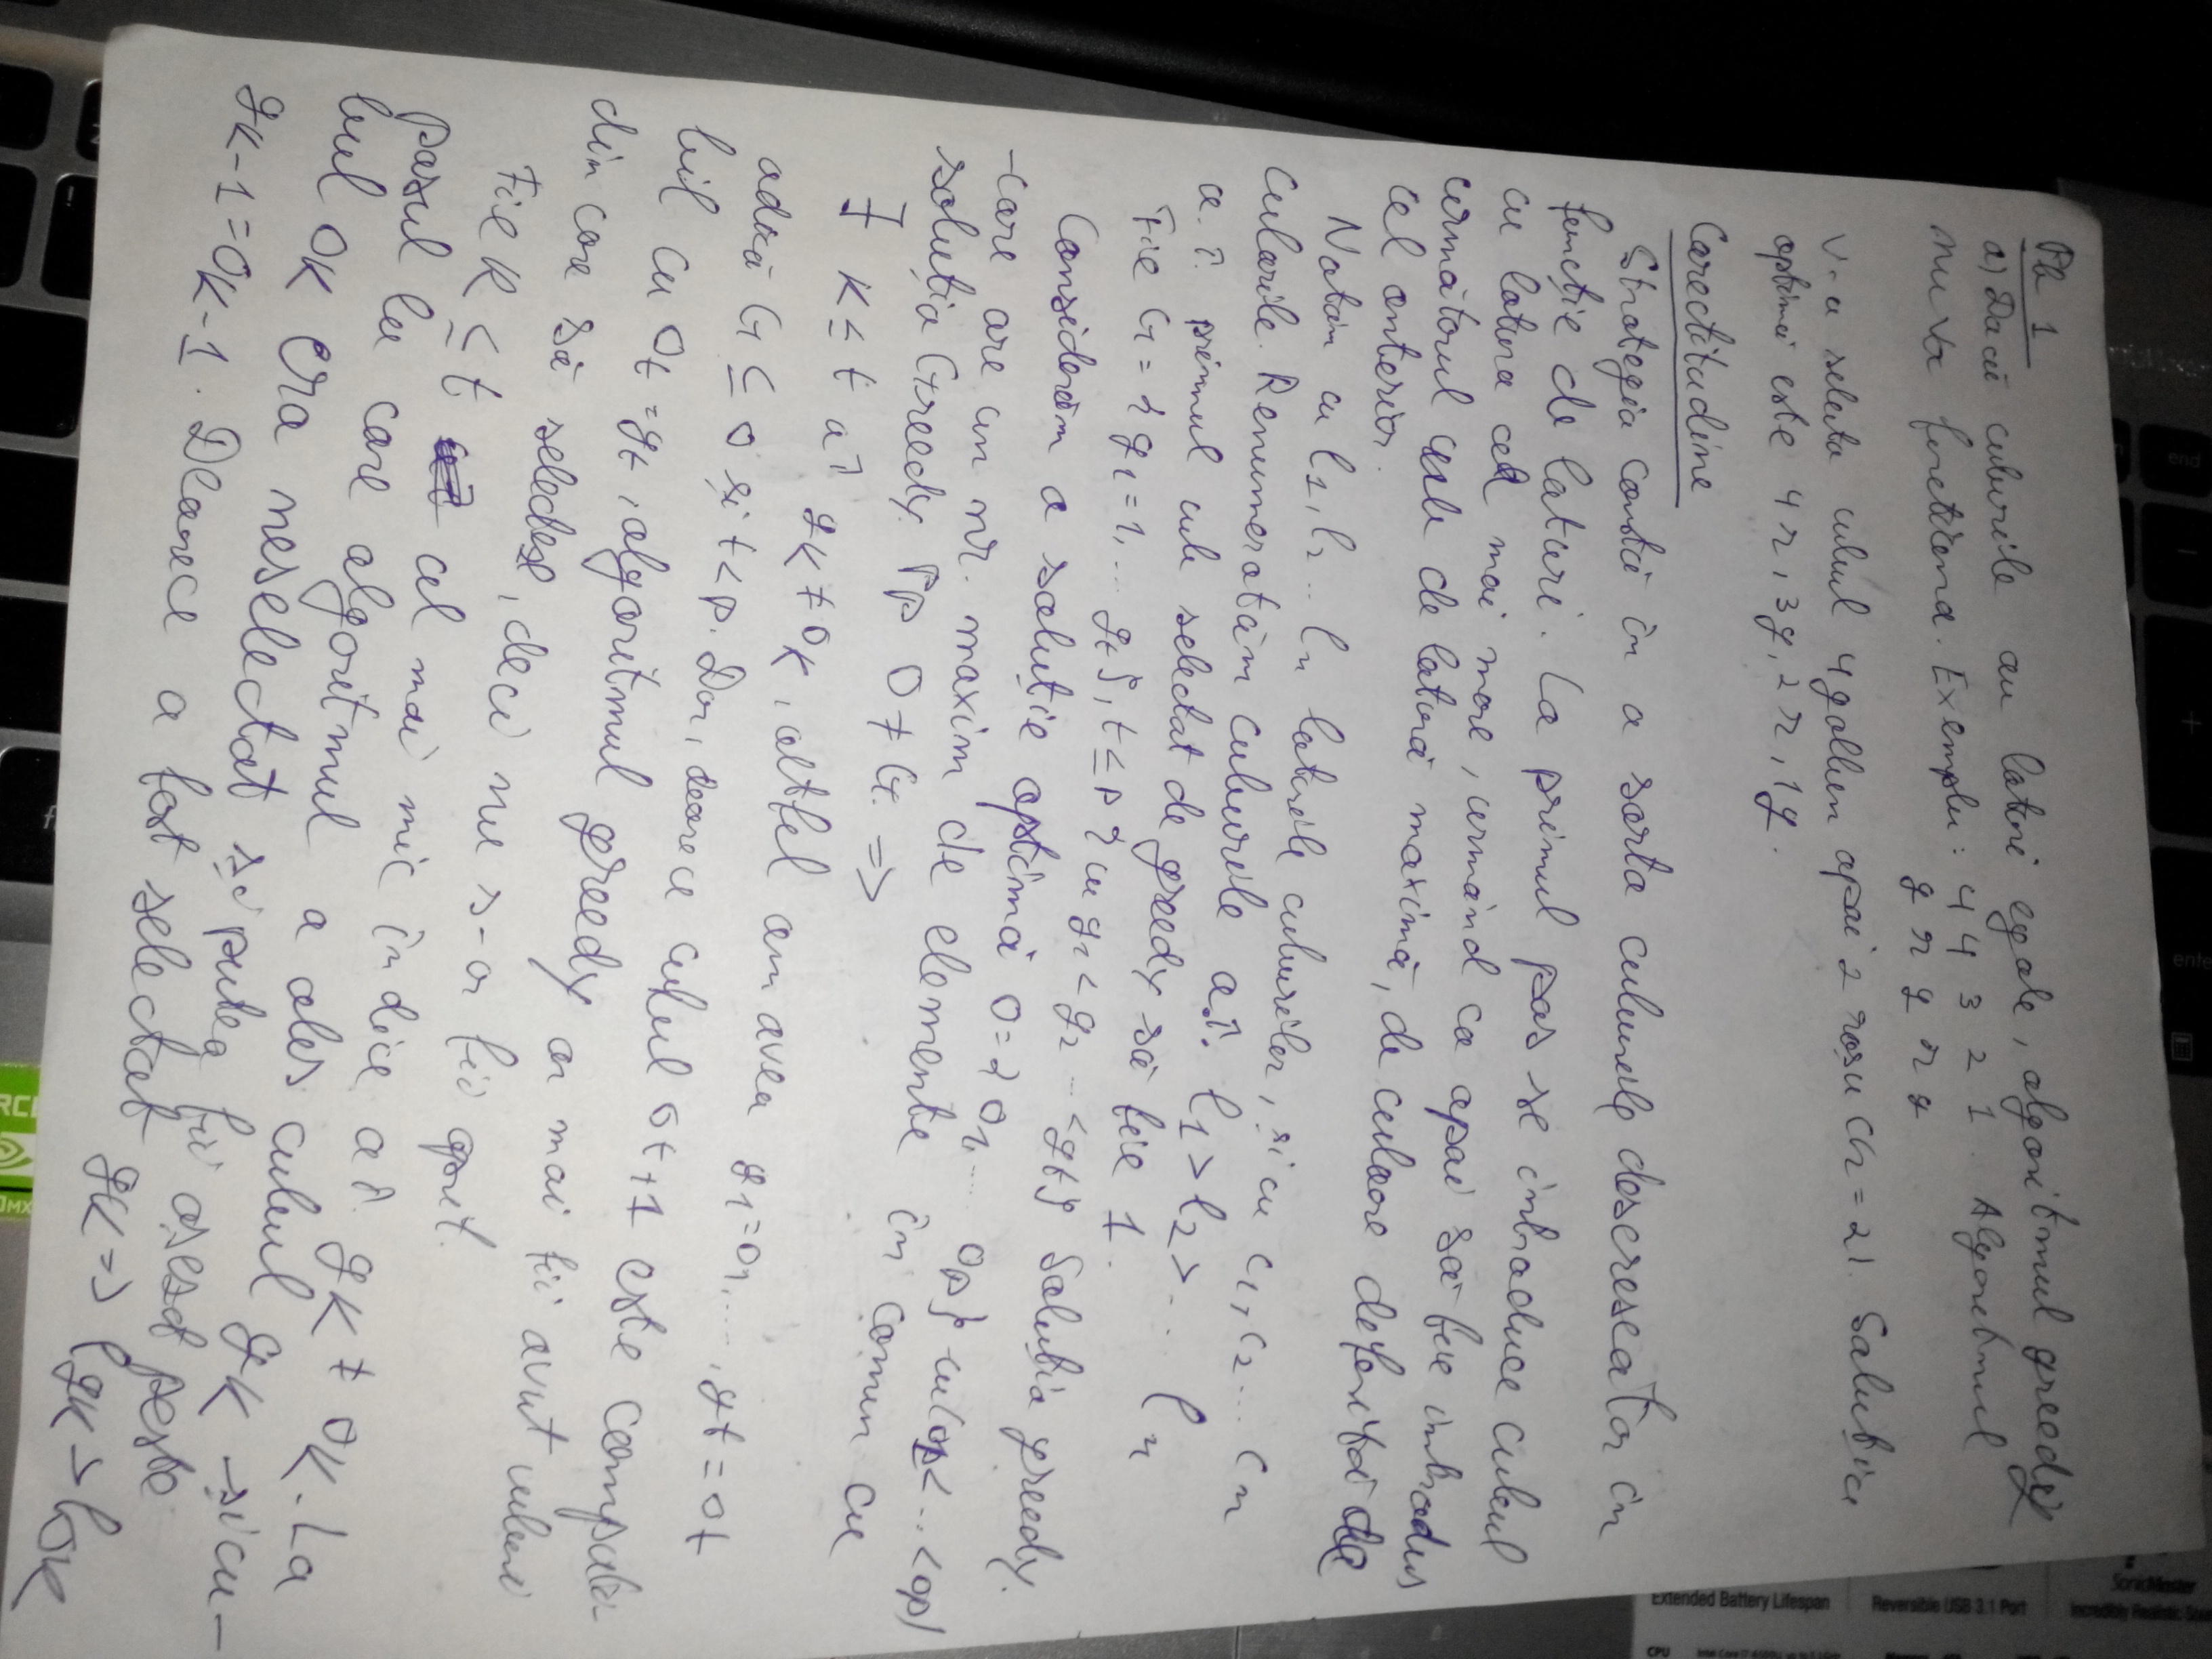 Pb 1
a) Dacă cuburile au laturi egale, algoritmul greedy
nu va funcționa. Exemplu: 4 4 3 2 1. Algoritmul
g r g r g
v-a selecta cubul 4 galben apoi 2 roșu (h=2). Soluția
optimă este 4r, 3g, 2r, 1g.
Corectitudine
Strategia constă în a sorta cuburile descrescător în
funcție de laturi. La primul pas se introduce cubul
cu latura cea mai mare, urmând ca apoi să fie introdus
următorul cub de latură maximă, de culoare diferită de
cel anterior.
Notăm cu l1, l2 ... ln laturile cuburilor, și cu c1, c2 ... cn
culorile. Renumerotăm cuburile a.î. l1 > l2 > ... ln
a.î. primul cub selectat de greedy să fie 1.
Fie G = {g1=1, ... gt}, t ≤ p cu g1 < g2 ... < gt} soluția greedy.
Considerăm a soluție optimă O = {o1, ... op} cu (o1 < ... < op)
-care are un nr. maxim de elemente în comun cu
soluția Greedy. Pp O ≠ G. =>
∃ k ≤ t aî gk ≠ ok, altfel am avea g1=o1, ..., gt=ot
adică G ⊆ O și t < p. Dar, deoarece cubul ot+1 este compati-
bil cu ot = gt, algoritmul greedy ar mai fi avut cuburi
din care să selecteze, deci nu s-ar fi oprit.
Fie k ≤ t cel mai mic indice aî gk ≠ ok. La
pasul la care algoritmul a ales cubul gk și cu-
bul ok era neselectat și putea fi așezat peste
gk-1 = ok-1. Deoarece a fost selectat gk => lgk > lok
Extended Battery Lifespan
Reversible USB 3.1 Port
SonicMaster
CPU
end
enter